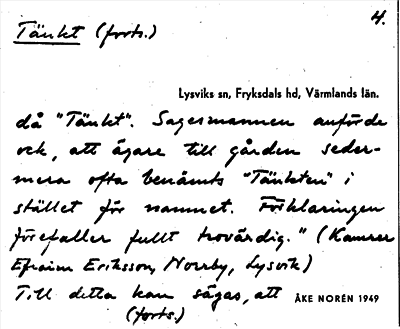 4.
Tänkt (forts.)
Lysviks sn, Fryksdals hd, Värmlands län.
då "Tänkt". Sagesmannen anförde
ock, att ägare till gården seder-
mera ofta benämts "Tänkten" i
stället för namnet. Förklaringen
förefaller fullt trovärdig." (Kamrer
Efraim Eriksson, Norrby, Lysvik)
Till detta kan sägas, att
ÅKE NORÉN 1949
(forts.)